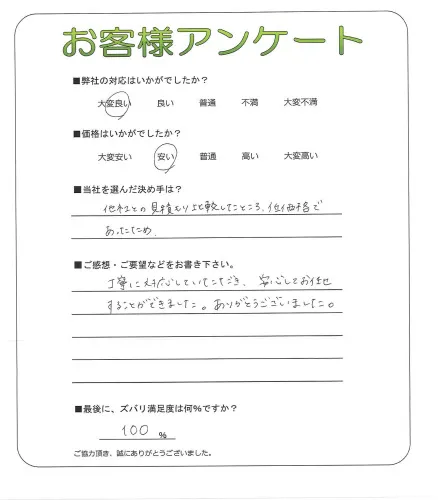 お客様アンケート
■弊社の対応はいかがでしたか？
大変良い 良い 普通 不満 大変不満
■価格はいかがでしたか？
大変安い 安い 普通 高い 大変高い
■当社を選んだ決め手は？
他社との見積もり比較したところ、低価格で
あったため、
■ご感想・ご要望などをお書き下さい。
丁寧に対応していただき、安心してお任せ
することができました。ありがとうございました。
■最後に、ズバリ満足度は何%ですか？
100 %
ご協力頂き、誠にありがとうございました。